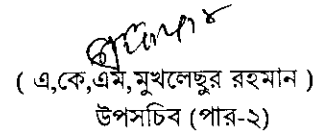 ( এ,কে,এম,মুখলেছুর রহমান )
উপসচিব (পার-২)